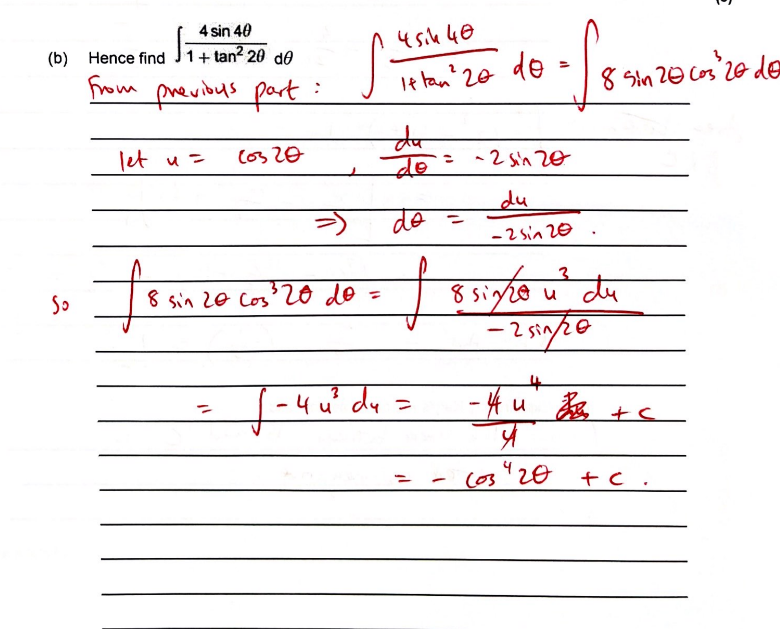 (b) Hence find ∫ 4 sin 4θ / 1 + tan² 2θ dθ
from previous part : ∫ 4 sin 4θ / 1+tan² 2θ dθ = ∫ 8 sin 2θ cos³ 2θ dθ
let u = cos 2θ , du/dθ = -2 sin 2θ
⇒ dθ = du / -2 sin 2θ .
So ∫ 8 sin 2θ cos³ 2θ dθ = ∫ 8 sin 2θ u³ du / -2 sin 2θ
= ∫ -4 u³ du = -4 u⁴ / 4 + c
= - cos⁴ 2θ + c .